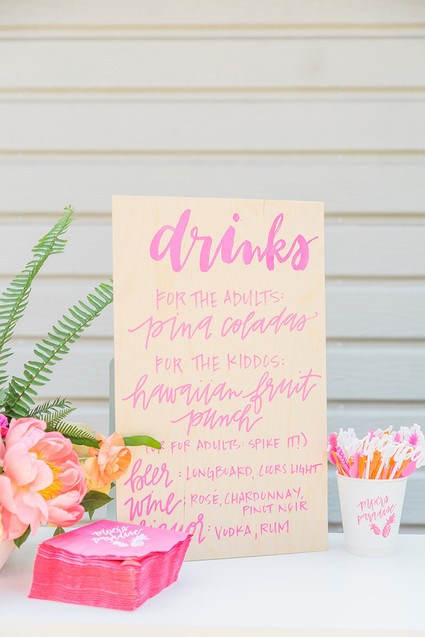 drinks
FOR THE ADULTS:
pina coladas
FOR THE KIDDOS:
hawaiian fruit
punch
(OR FOR ADULTS: SPIKE IT!)
beer: LONGBOARD, COORS LIGHT
wine: ROSE, CHARDONNAY,
PINOT NOIR
liquor: VODKA, RUM
paradise